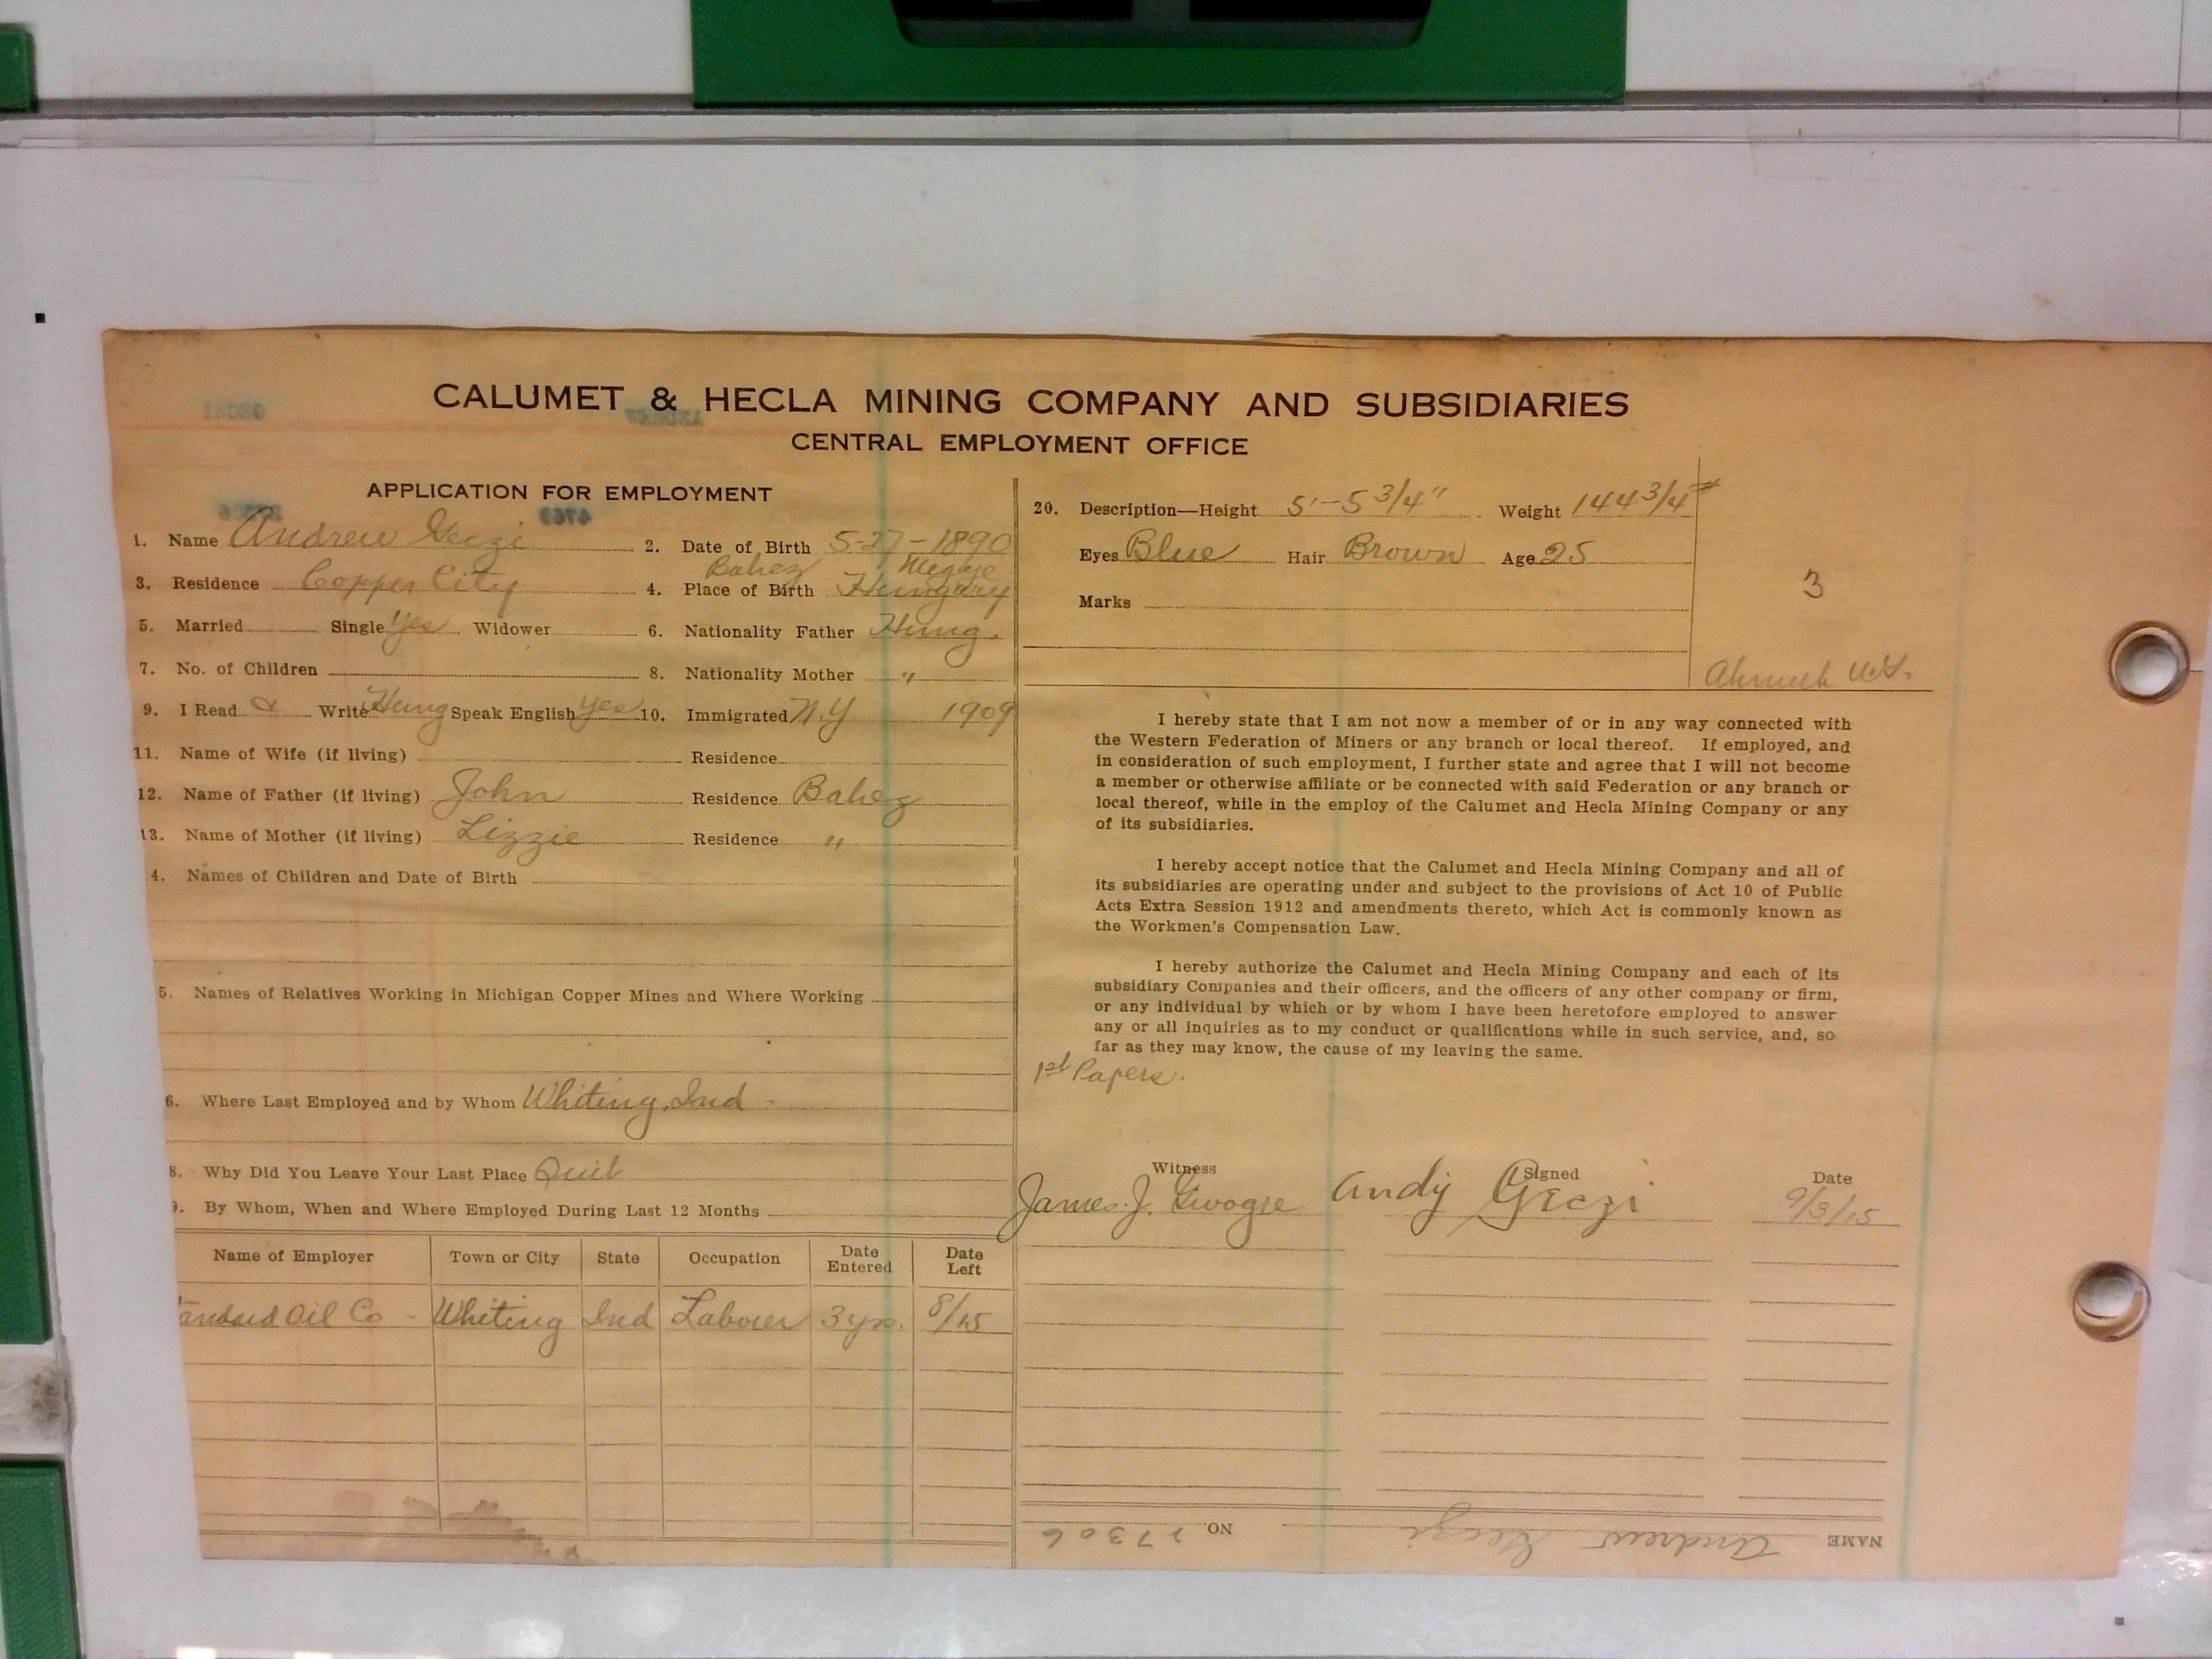 CALUMET & HECLA MINING COMPANY AND SUBSIDIARIES
CENTRAL EMPLOYMENT OFFICE
APPLICATION FOR EMPLOYMENT
4769
1. Name Andrew Geczi 2. Date of Birth 5-27-1890
Bahez Megye
3. Residence Copper City 4. Place of Birth Hungary
5. Married Single Yes Widower 6. Nationality Father Hung.
7. No. of Children 8. Nationality Mother "
9. I Read & Write Hung Speak English Yes 10. Immigrated N.Y 1909
11. Name of Wife (if living) Residence
12. Name of Father (if living) John Residence Bahez
13. Name of Mother (if living) Lizzie Residence "
4. Names of Children and Date of Birth
5. Names of Relatives Working in Michigan Copper Mines and Where Working
6. Where Last Employed and by Whom Whiting, Ind -
8. Why Did You Leave Your Last Place Quit
9. By Whom, When and Where Employed During Last 12 Months
Name of Employer Town or City State Occupation Date Entered Date Left
andard Oil Co - Whiting Ind Laborer 3 yrs. 8/15
20. Description—Height 5'-5 3/4" Weight 144 3/4 #
Eyes Blue Hair Brown Age 25
3
Marks
Ahmeek
I hereby state that I am not now a member of or in any way connected with
the Western Federation of Miners or any branch or local thereof. If employed, and
in consideration of such employment, I further state and agree that I will not become
a member or otherwise affiliate or be connected with said Federation or any branch or
local thereof, while in the employ of the Calumet and Hecla Mining Company or any
of its subsidiaries.
I hereby accept notice that the Calumet and Hecla Mining Company and all of
its subsidiaries are operating under and subject to the provisions of Act 10 of Public
Acts Extra Session 1912 and amendments thereto, which Act is commonly known as
the Workmen's Compensation Law.
I hereby authorize the Calumet and Hecla Mining Company and each of its
subsidiary Companies and their officers, and the officers of any other company or firm,
or any individual by which or by whom I have been heretofore employed to answer
any or all inquiries as to my conduct or qualifications while in such service, and, so
far as they may know, the cause of my leaving the same.
1st Papers.
Witness Signed Date
James. J. Andy Geczi 9/3/15
NAME Andrew Geczi NO. 27306